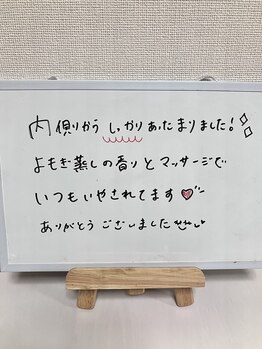 内側からしっかりあったまりました！
よもぎ蒸しの香りとマッサージで
いつもいやされてます
ありがとうございました